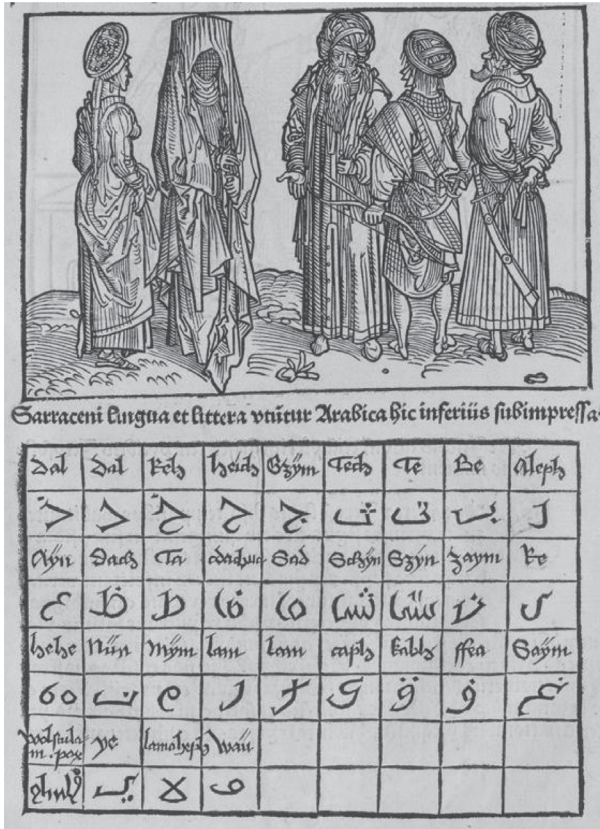 Sarraceni lingua et littera vtūtur Arabica hic inferius subimpressa.
Dal Dal Keh heich Gzÿm Tech Te Be Aleph
ذ د خ ح ج ث ت ب ا
Aÿn Dach Ta Sad Schÿn Szÿn zaym Re
ع ظ ط ض ص ش س ز ر
hehe Nün Mÿm lam lam caph kabh ffea Gaÿm
ه ن م ل ك ق ف غ
ye Wau
ي لا و